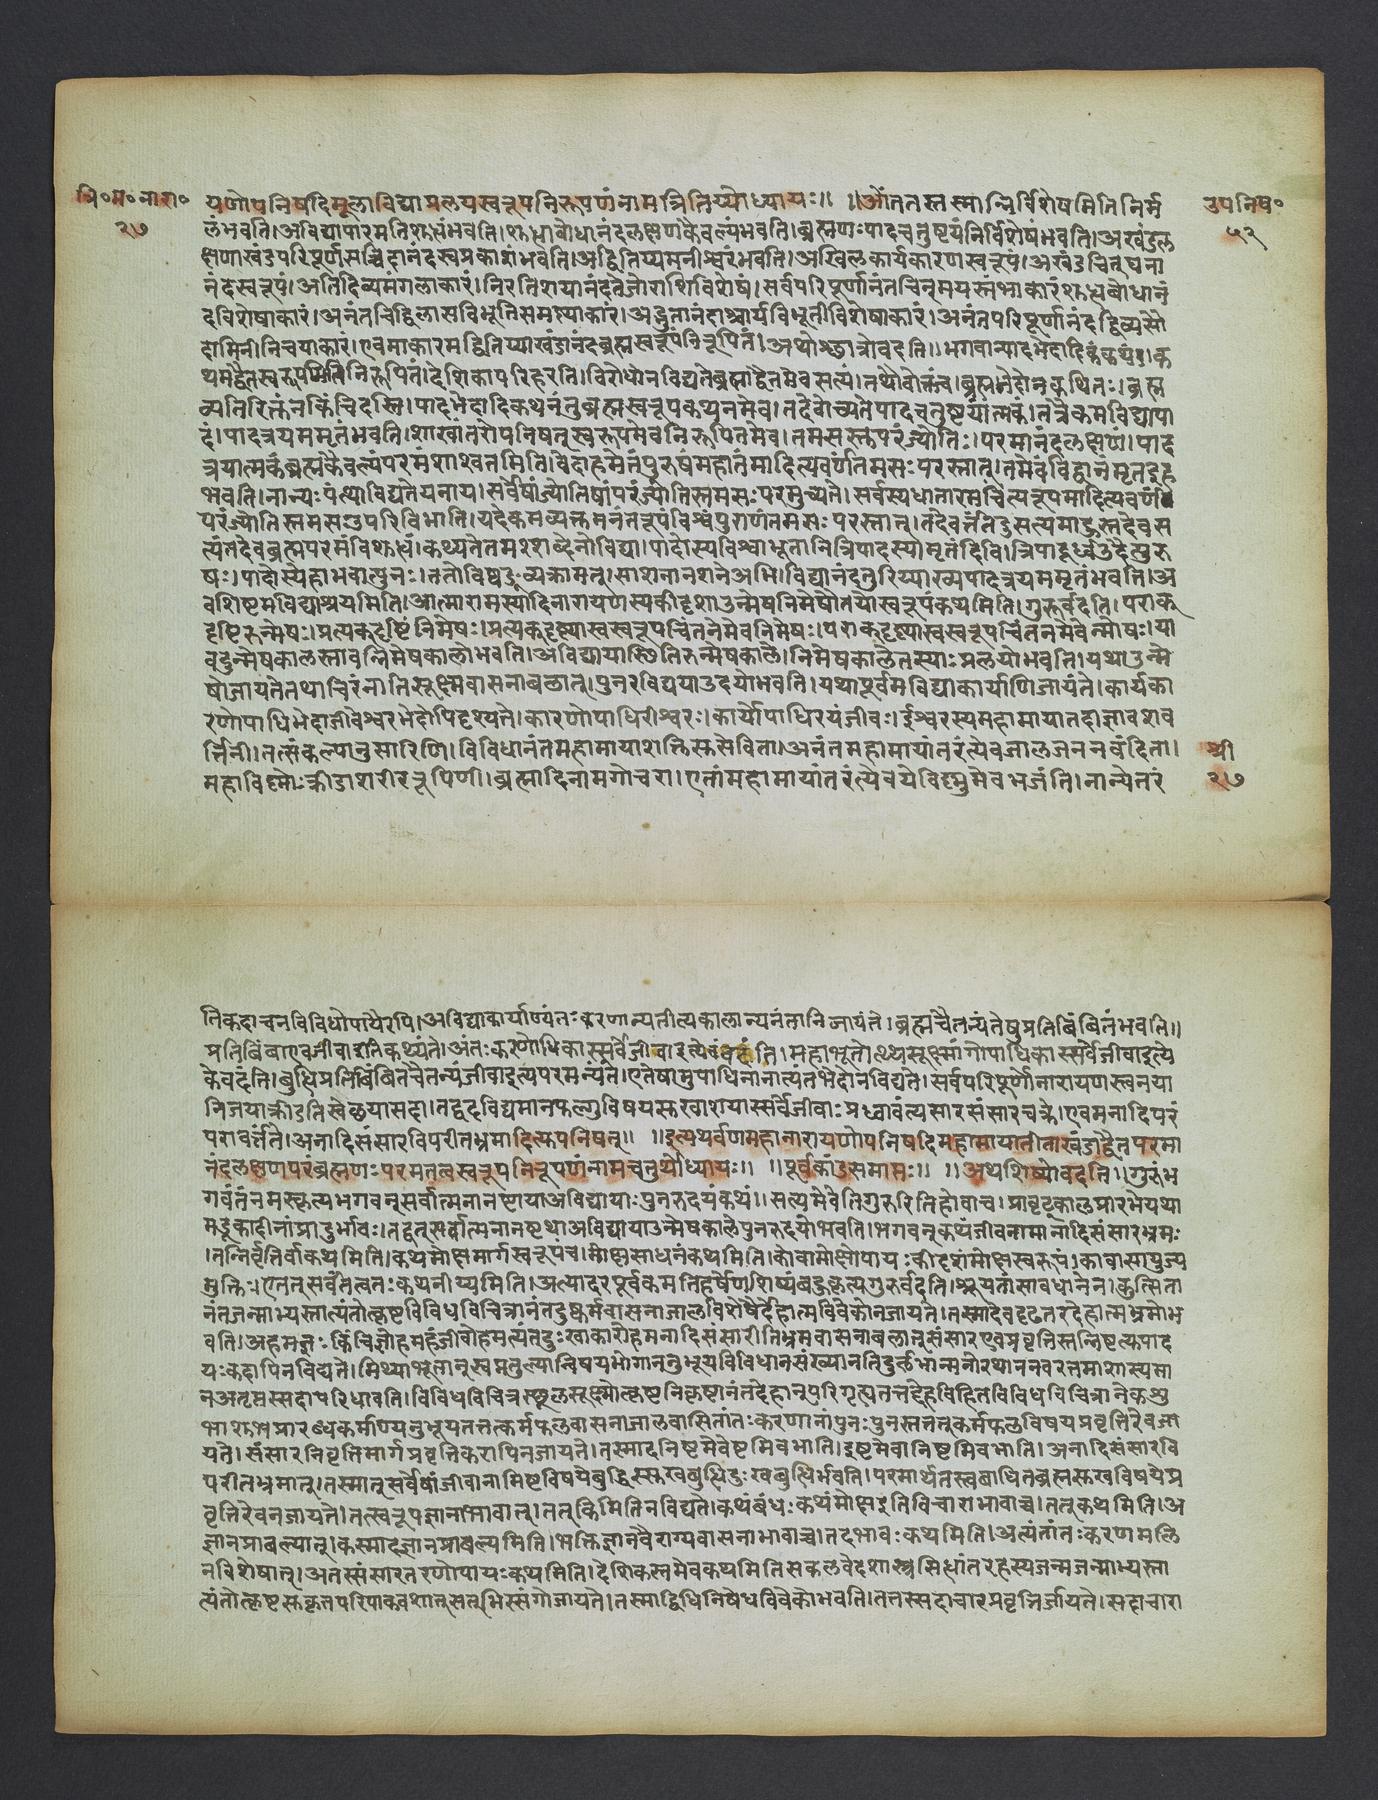 त्रि॰म॰नारा॰
२७
उपनिष॰
५२
यणोपनिषदिमूलाविद्याप्रलयस्वरूपनिरूपणंनामत्रितिय्योध्यायः॥ ॥ओंततस्तस्मान्निर्विशेषमितिनिर्म
लंभवति।अविद्यापारमतिशुत्धंभवति।शुत्धबोधानंदलक्षणकैवल्यंभवति।ब्रह्मणःपादचतुष्टयंनिर्विशेषंभवति।अखंडल
क्षणाखंडपरिपूर्णसच्चिदानंदस्वप्रकाशंभवति।अद्वितिय्यमनीश्वरंभवति।अखिलकार्यकारणस्वरूपं।अखंडचित्घना
नंदस्वरूपं।अतिदिव्यमंगलाकारं।निरतिशयानंदतेजोराशिविशेषं।सर्वपरिपूर्णानंतचिन्मयस्तंभाकारंशुत्धबोधानं
दविशेषाकारं।अनंतचिद्विलासविभूतिसमष्ट्याकारं।अद्भुतानंदाश्चार्यविभूतीविशेषाकारं।अनंतपरिपूर्णानंददिव्यसौ
दामिनीनिचयाकारं।एवमाकारमद्वितिय्याखंडानंदब्रह्मस्वरूपंनिरूपितं।अथोश्छात्रोवदति॥भगवान्पादभेदादिकंकथं।क
थमद्वैतस्वरूपमितिनिरूपितं।देशिकःपरिहरति।विरोधोनविद्यतेब्रह्माद्वैतमेवसत्यं।तथैवोक्तंच।ब्रह्मभेदोनकथितः।ब्रह्म
व्यतिरिक्तंनकिंचिदस्ति।पादभेदादिकथनंतुब्रह्मस्वरूपकथनमेव।तदेवोच्यतेपादचतुष्टयात्मकं।तत्रैकमविद्यापा
दं।पादत्रयममृतंभवति।शाखांतरोपनिषत्स्वरूपमेवनिरूपितमेव।तमसस्तुपरंज्योतिः।परमानंदलक्षणं।पाद
त्रयात्मकंब्रह्मकैवल्यंपरमंशाश्वतमिति।वेदाहमेतंपुरुषंमहांतमादित्यवर्णंतमसःपरस्तात्।तमेवंविद्वानमृतइह
भवति।नान्यःपंत्थाविद्यतेयनाय।सर्वेषांज्योतिषांपरंज्योतिस्तमसःपरमुच्यते।सर्वस्यधातारमचिंत्यरूपमादित्यवर्णं
परंज्योतिस्तमसउपरिविभाति।यदेकमव्यक्तमनंतरूपंविश्वंपुराणंतमसःपरस्तात्।तदेवर्तंतदुसत्यमाहुस्तदेवस
त्यंतदेवब्रह्मपरमंविशुत्धं।कथ्यतेतमशशब्देनोविद्या।पादोस्यविश्वाभूतानित्रिपादस्यामृतंदिवि।त्रिपादूर्ध्वउदैत्पुरु
षः।पादोस्येहाभवात्पुनः।ततोविष्वङ्व्यक्रामत्।साशनानशनेअभि।विद्यानंदतुरिय्याख्यपादत्रयममृतंभवति।अ
वशिष्टमविद्याश्रयमिति।आत्मारामस्यादिनारायणस्यकीदृशाउन्मेषनिमेषौतयोस्वरूपंकथमिति।गुरुर्वदति।पराक्
दृष्टिरुन्मेषः।प्रत्यक्दृष्टिंनिमेषः।प्रत्यक्दृष्ट्यास्वस्वरूपचिंतनमेवनिमेषः।पराक्दृष्ट्यास्वस्वरूपचिंतनमेवन्मोषः।या
वदुन्मेषकालस्तावन्निमेषकालोभवति।अविद्यायास्थितिरुन्मेषकाले।निमेषकालेतस्याःप्रलयोभवति।यथाउन्मे
षोजायतेतथाचिरंनातिसूक्ष्मवासनाबलात्।पुनरविद्ययाउदयोभवति।यथापूर्वमविद्याकार्याणिजायंते।कार्यका
रणोपाधिभेदाजीवेश्वरभेदोपिदृश्यते।कारणोपाधिरीश्वरः।कार्योपाधिरयंजीवः।ईश्वरस्यमहामायातदाज्ञावशव
र्त्तिनी।तत्संकल्पानुसारिणि।विविधानंतमहामायाशक्तिसुसेविता।अनंतमहामायांतरंत्येवजालजननवंदिता।
महाविष्णोःक्रीडाशरीररूपिणी।ब्रह्मादिनामगोचरा।एतांमहामायांतरंत्येवयेविष्णुमेवभजंति।नान्येतरं
श्री
२७
तिकदाचनविविधोपायैरपि।अविद्याकार्याण्यंतःकरणान्यतीत्यकालान्यनंतानिजायंते।ब्रह्मचैतन्यंतेषुप्रतिबिंबितंभवति॥
प्रतिबिंबाएवजीवाइतिकथ्यंते।अंतःकरणोधिकास्सर्वेजीवाइत्येवंवदंति।महाभूतोत्थसूक्ष्मांगोपाधिकास्सर्वेजीवाइत्ये
केवदंति।बुत्धिप्रतिबिंबितचैतन्यंजीवाइत्यपरमन्यंते।एतेषामुपाधिनानात्यंतभेदोनविद्यते।सर्वपरिपूर्णोनारायणस्त्वनया
निजयाक्रीडतिस्वेछयासदा।तद्वदविद्यमानफल्गुविषयसुखाशयास्सर्वेजीवाःप्रधावंत्यसारसंसारचक्रे।एवमनादिपरं
परावर्त्तते।अनादिसंसारविपरीतभ्रमादित्युपनिषत्॥ ॥इत्यथर्वणमहानारायणोपनिषदिमहामायातीताखंडाद्वैतपरमा
नंदलक्षणपरंब्रह्मणःपरमतत्वस्वरूपनिरूपणंनामचतुर्योध्यायः॥ ॥पूर्वकांडसमाप्तः॥ ॥अथशिष्योवदति॥गुरुंभ
गवंतंनमस्कृत्यभगवन्सर्वात्मनानष्टायाअविद्यायाःपुनरुदयंकथं॥सत्यमेवेतिगुरुरितिहोवाच।प्रावृट्कालप्रारंभेयथा
मडूकादीनांप्रादुर्भावः।तद्वत्सर्वात्मनानष्टथाअविद्यायाउन्मेषकालेपुनरुदयोभवति।भगवन्कथंजीवनामानादिसंसारभ्रमः
।तन्निर्वृतिर्वाकथमिति।कथंमोक्षमार्गस्वरूपंच।मोक्षसाधनंकथमिति।कोवामोक्षोपायःकीदृशंमोक्षस्वरूपं।कावासायुज्य
मुक्तिः।एतत्सर्वंतत्वतःकथनीय्यमिति।अत्यादरपूर्वकमतिहर्षेणशिष्यंबहुकृत्यगुरुर्वदति।श्रूयतांसावधानेन।कुत्सिता
नंतजन्माभ्यस्तात्यंतोत्कृष्टविविधविचित्रानंतदुष्कर्मवासनाजालविशेषैर्देहात्मविवेकोनजायते।तस्मादेवदृढतरदेहात्मभ्रमोभ
वति।अहमज्ञःकिंचिज्ञोहमहंजीवोहमत्यंतदुःखाकारोहमनादिसंसारीतिभ्रमवासनाबलात्संसारएवप्रवृत्तिस्तन्निष्टत्युपाद
यःकदापिनविद्यते।मिथ्याभूतान्स्वप्नतुल्यान्विषयभोगाननुभूयविविधानसंख्यानतिदुर्लभान्मनोरथाननवरतमाशास्यमा
नअतृप्तस्सदापरिधावति।विविधविचित्रस्थूलसूक्ष्मोत्कृष्टनिकृष्टानंतदेहान्परिगृह्यतत्तद्देहविहितविविधविचित्रानेकशु
भाशुभप्रारब्धकर्माण्यनुभूयतत्तत्कर्मफलवासनाजालवासितांतःकरणानांपुनःपुनस्तत्तत्कर्मफलविषयप्रवृत्तिरेवजा
यते।संसारनिवृत्तिमार्गप्रवृत्तिकरापिनजायते।तस्मादनिष्टमेवेष्टमिवभाति।इष्टमेवानिष्टमिवभाति।अनादिसंसारवि
परीतभ्रमात्।तस्मात्सर्वेषांजीवानामिष्टविषयेबुद्धिस्सुखबुत्धिदुःखबुत्धिर्भवति।परमार्थतस्त्वबाधितब्रह्मसुखविषयेप्र
वृत्तिरेवनजायते।तत्स्वरूपज्ञानाभावात्।तत्किमितिनविद्यते।कथंबंधःकथंमोक्षइतिविचाराभावाच्च।तत्कथमिति।अ
ज्ञानप्राबल्यात्।कस्मादज्ञानप्राबल्यमिति।भक्तिज्ञानवैराग्यवासनाभावाच्च।तदभावःकथमिति।अत्यंतांतःकरणमलि
नविशेषात्।अतस्संसारतरणोपायःकथमिति।देशिकस्तमेवकथमितिसकलवेदशास्त्रसित्धांतरहस्यजन्मजन्माभ्यस्ता
त्यंतोत्कृष्टसुकृतपरिपाकवशात्सत्भिस्संगोजायते।तस्माद्विधिनिषेधविवेकोभवति।ततस्सदाचारप्रवृत्तिर्जायते।सदाचारा